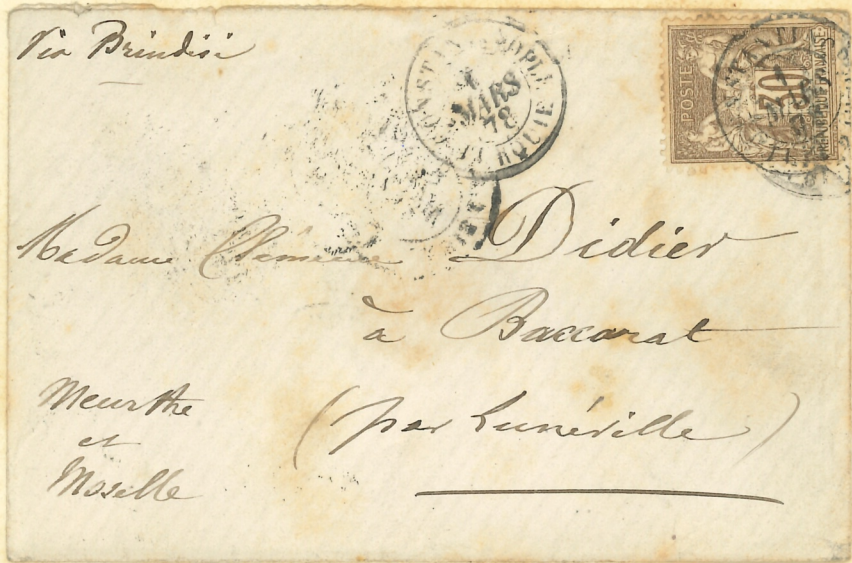 Via Brindisi
CONSTANTINOPLE
MARS
78
TURQUIE
POSTE
30
REPUBLIQUE FRANCAISE
Madame Didier
à Baccarat
(par Lunéville)
Meurthe
et
Moselle